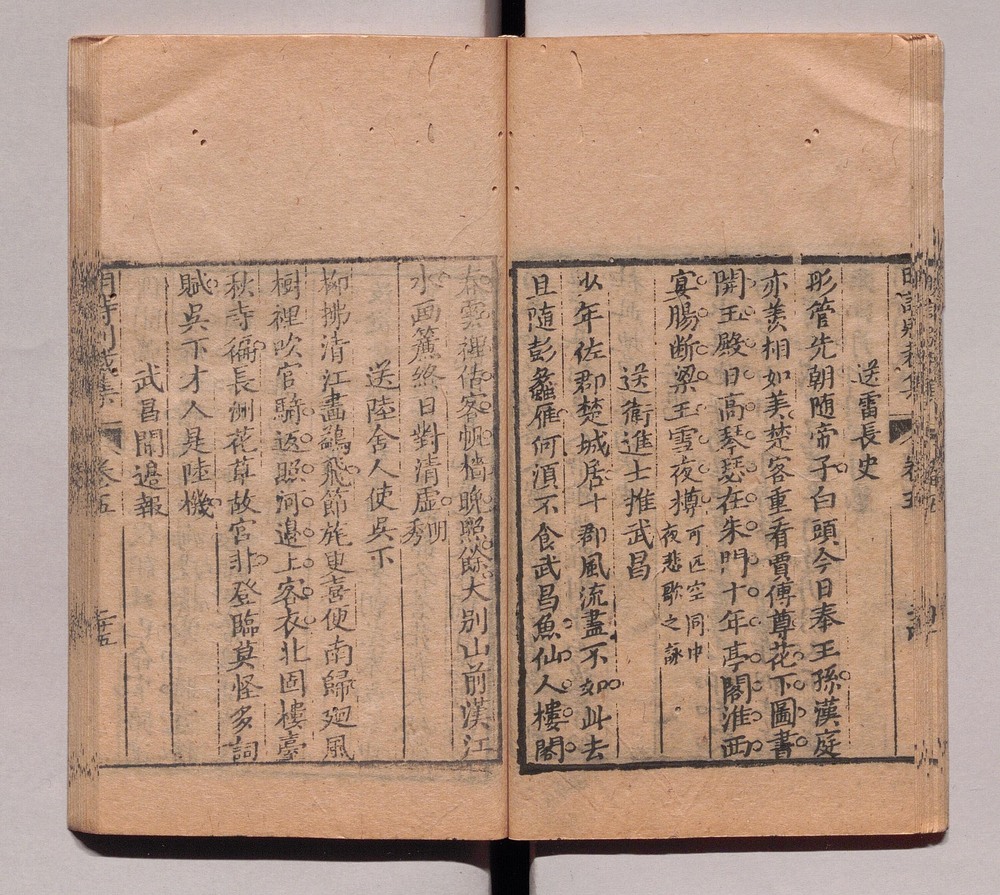 送雷長史
彤管先朝随帝子白頭今日奉王孫漢庭
亦羡相如美楚客重看賈傅尊花下圖書
開玉殿日高琴瑟在朱門十年亭閣淮西
宴腸断梁王雪夜樽可匹空同中
夜悲歌之詠
送衛進士推武昌
少年佐郡楚城居十郡風流盡不如此去
且随彭蠡雁何湏不食武昌魚仙人樓閣
卷五
春雲裡估客帆檣晩照餘大别山前漢江
水画簾終日對清虛明
秀
送陸舍人使吳下
柳拂清江畫鷁飛節旄更喜便南歸廻風
樹裡吹官騎返照河邉上客衣北固樓臺
秋寺徧長洲花草故宫非登臨莫怪多詞
賦吳下才人是陸機
武昌聞邉報
卷五
三十五